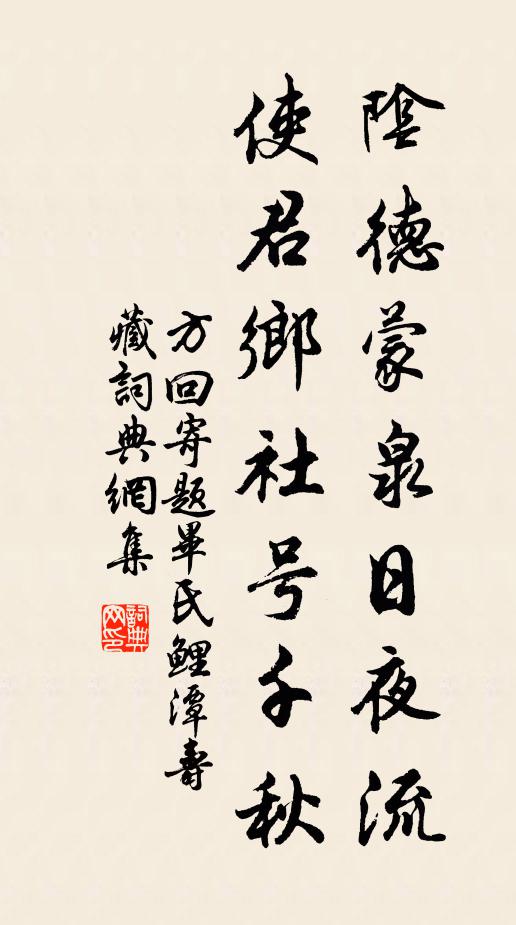 陰德蒙泉日夜流
使君鄉社号千秋
方回寄题畢氏鯉潭壽
藏詞典網集
詞典网印